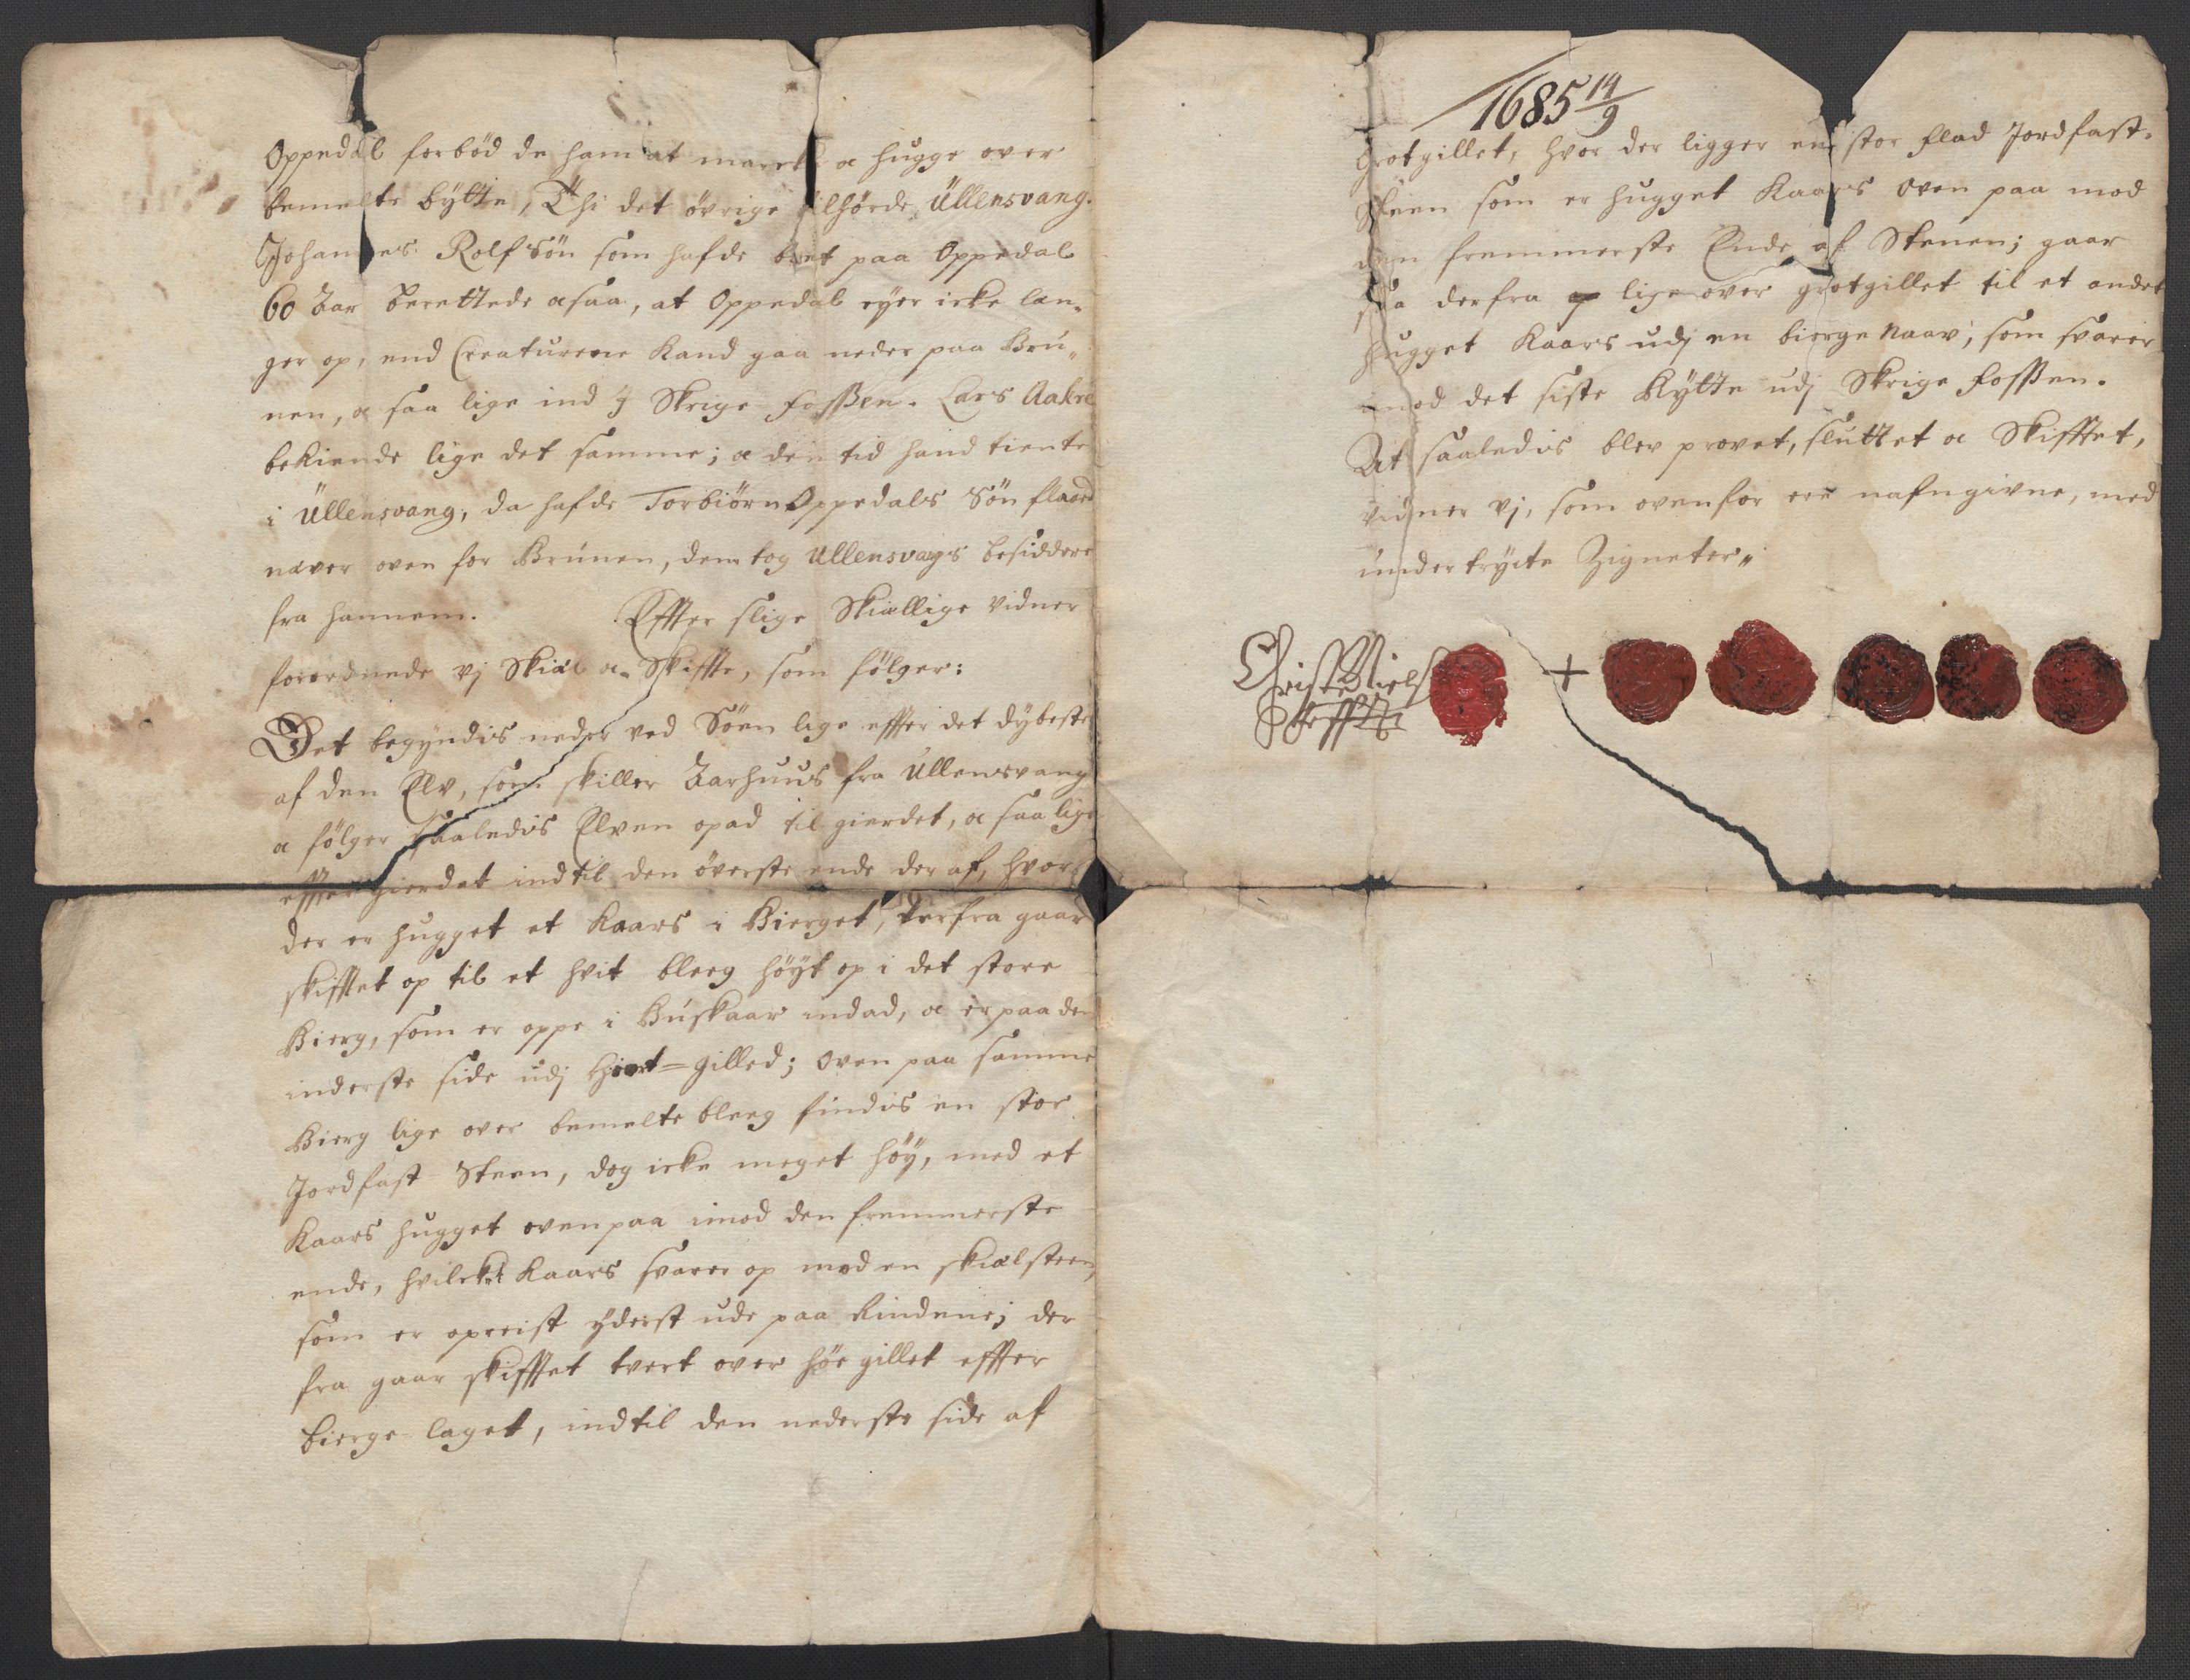 Oppedal forbød de ham at marcke a hugge over
bemelte bytte, Thi det øvrige tilhørde Ullensvang.
Johannes Rolfsøn som hafde boet paa Oppedal
60 Aar berettede asaa, at Oppedal eyer icke læn„
ger op, end Creaturene kand gaa neder paa Brú„
nen, a saa lige ind J Skrige fossen. Lars Aakre
bekiende lige det samme; a den tid hand tiente
i Ullensvang, da hafde Torbiørn Oppedals Søn flaaed
næver oven for Brúnen, dem tog Ullensvangs besiddere
fra hannem. Effter slige Skiællige vidner
forordnede vj Skiæl a Skiffte, som følger:
Det begyndis neder ved Søen lige effter det dybeste
af den Elv, som skiller Aarhuus fra Ullensvang
a følger saaledis Elven opad til gierdet, a saa lige
effter gierdet indtil den øverste ende der af, hvor
der er hugget et Kaars i Bierget, derfra gaar
skifftet op til et hvit bleeg høyt op i det store
Bierg, som er oppe i Búskaar indad, a er paa den
inderste side udj Hiort=gilled; oven paa samme
Bierg lige over bemelte bleeg findis en stor
Jordfast Steen, dog icke meget høy, med et
Kaars hugget oven paa imod den fremmerste
ende, hvilcket Kaars svarer op mod en skiælsteen,
som er opreist yderst ude paa Rindene; der
fra gaar skifftet tvert over hør gillet effter
bierge laget, indtil den nederste side af
1685 14/9
grotgillet, hvor der ligger en stor flad Jordfast
Steen som er hugget Kaars oven paa mod
den fremmerste Ende af Stenen; gaar
saa derfra lige over grotgillet til et andet
hugget Kaars udj en bierge Naav, som svarer
imod det siste Bytte udj Skrige fossen.
At saaledis blev provet, sluttet a Skifftet,
vidner vj, som ovenfor ere nafngivne, med
undertrycte Zigneter„
Christen Niels
+